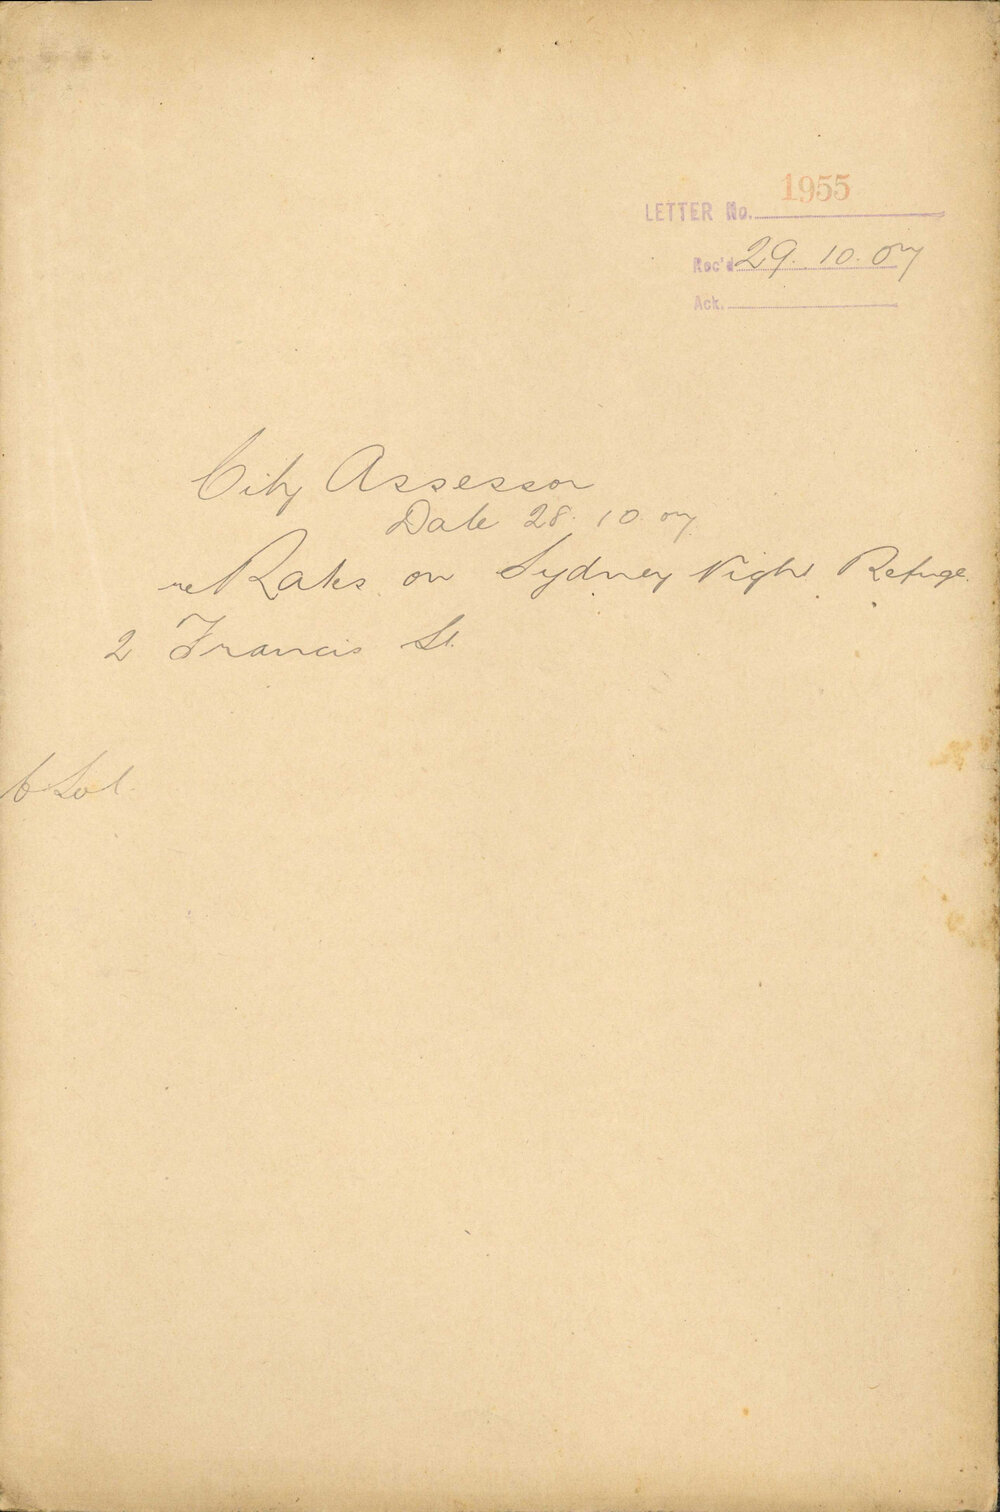 LETTER No. 1955
Rec'd 29. 10. 07
Ack.
City Assessor
Date 28. 10. 07.
re Rates on Sydney Night Refuge.
2 Francis St.
C Sol.